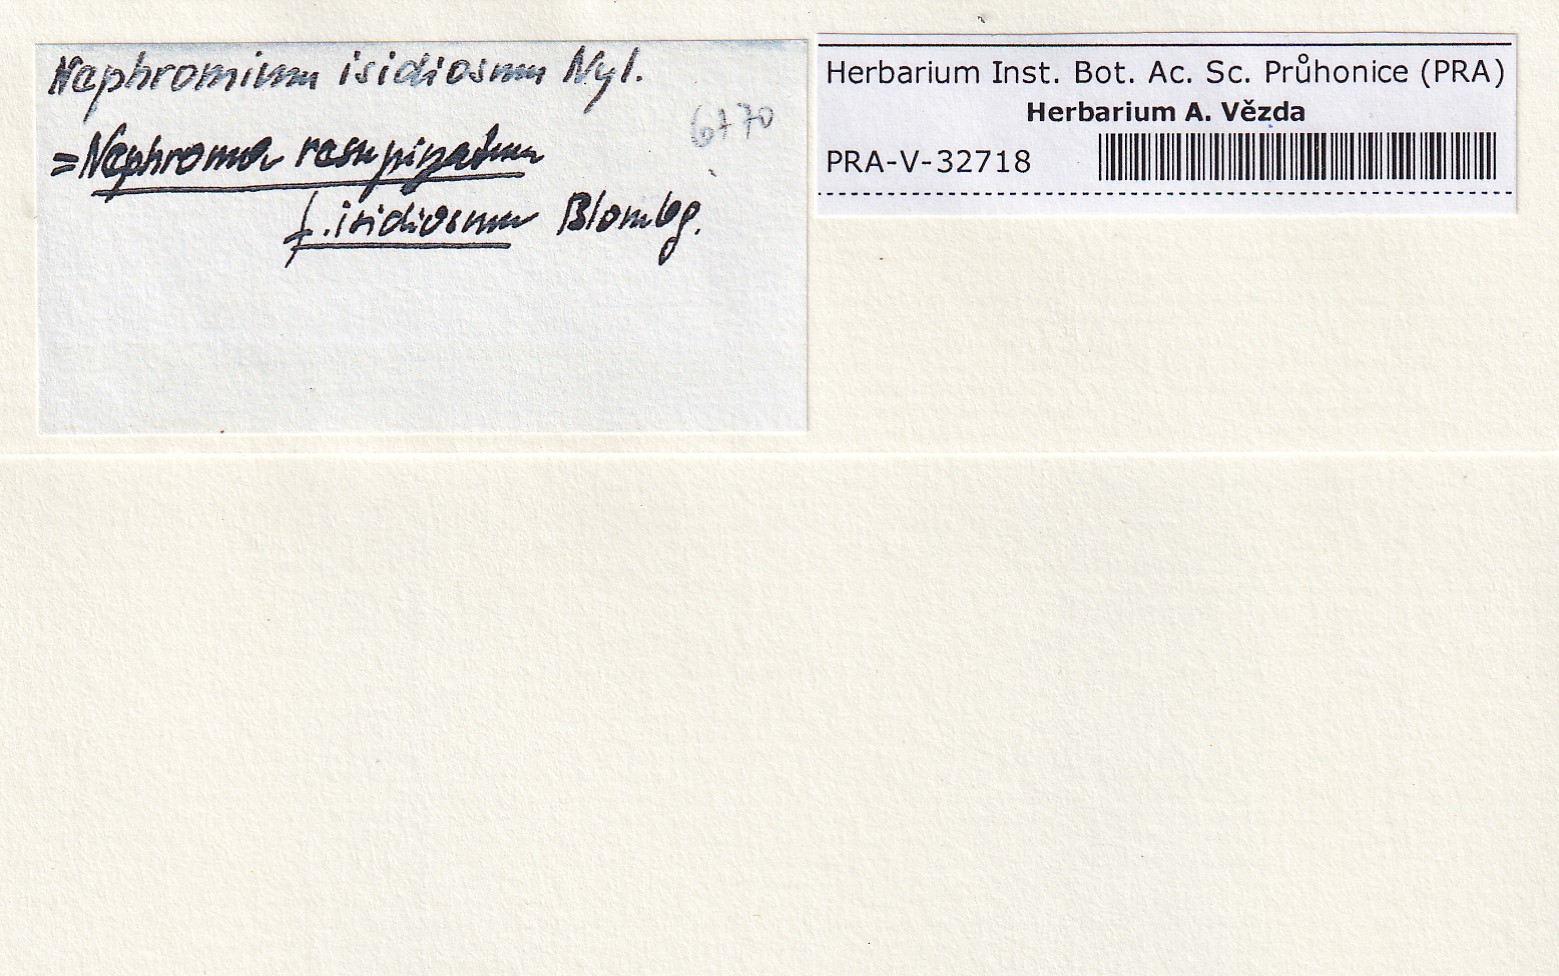 Nephromium isidiosum Nyl.
6770
=Nephroma resupinatum
f. isidiosum Blombg.
Herbarium Inst. Bot. Ac. Sc. Průhonice (PRA)
Herbarium A. Vězda
PRA-V-32718